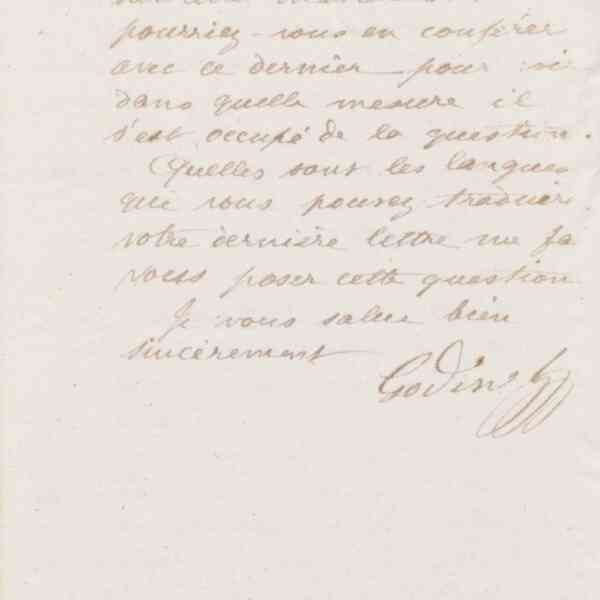 pourriez-vous en conférer
avec ce dernier pour
dans quelle mesure il
s'est occupé de la question.
Quelles sont les langues
que vous pouvez traduire.
votre dernière lettre me fa
vous poser cette question
Je vous salue bien
sincèrement
Godin